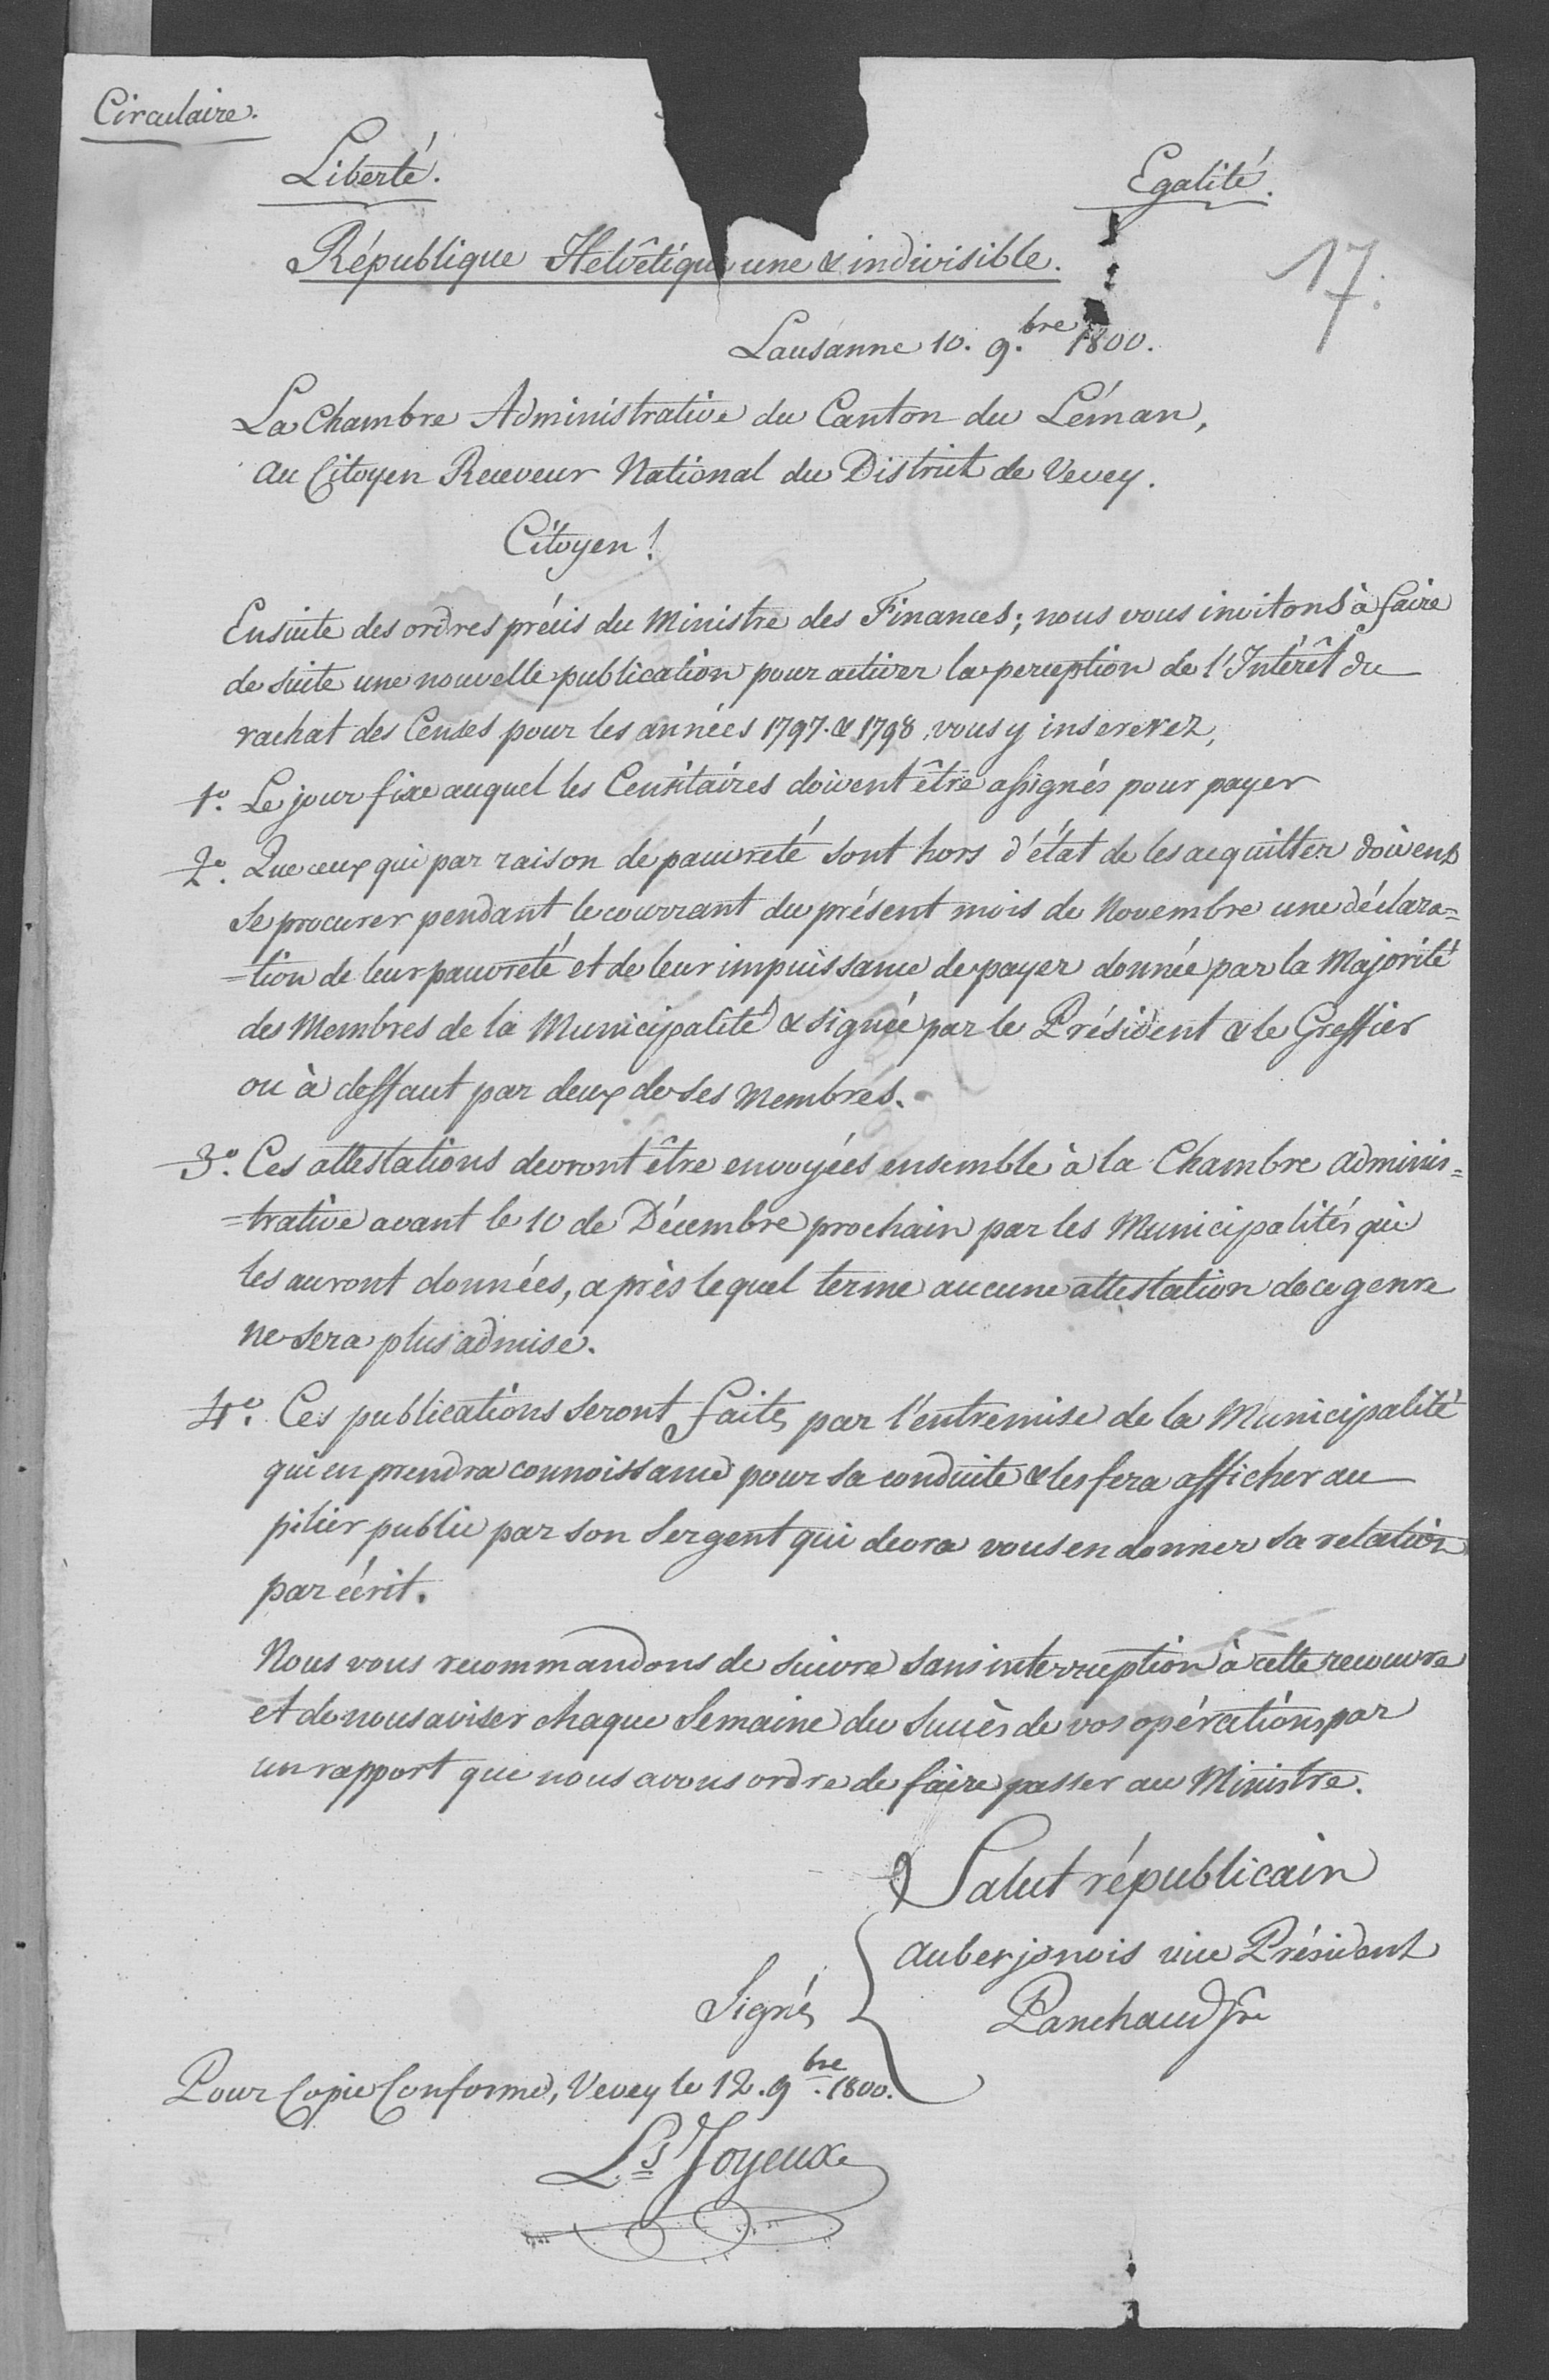 Circulaire.
Liberté. Egalité.
République Helvêtique une & indivisible.
17.
Lausanne 10. 9.bre 1800.
La Chambre Administrative du Canton du Léman,
au Citoyen Receveur National du District de Vevey.
Citoyen!
Ensuite des ordres précis du Ministre des Finances; nous vous invitons à faire
de suite une nouvelle publication pour activer la perception de l'Intérêt du
rachat des Censes pour les années 1797. & 1798, vous y insererez,
1.º Le jour fixe auquel les Censitaires doivent être assignés pour payer
2.º Que ceux qui par raison de pauvreté sont hors d'état de les acquitter doivent
se procurer pendant le courrant du présent mois de Novembre une déclara=
=tion de leur pauvreté et de leur impuissance de payer donnée par la Majorité
des Membres de la Municipalité & signée par le Président & le Greffier
ou à deffaut par deux de ses Membres.
3.º Ces attestations devront être envoyées ensemble à la Chambre adminis=
=trative avant le 10 de Décembre prochain par les Municipalités qui
les auront données, après lequel terme aucune attestation de ce genre
ne sera plus admise.
4.º Ces publications seront faites par l'entremise de la Municipalité
qui en prendra connoissance pour sa conduite & les fera afficher au
pilier public par son Sergent qui devra vous en donner sa relation
par écrit.
Nous vous recommandons de suivre sans interruption à cette recouvre
et de nous aviser chaque Semaine du Succès de vos opérations par
un rapport que nous avons ordre de faire passer au Ministre.
Salut républicain
Auberjonois vice Président
Signés Panchaud Sre
Pour Copie Conforme, Vevey le 12. 9.bre 1800.
Ls Joyeux